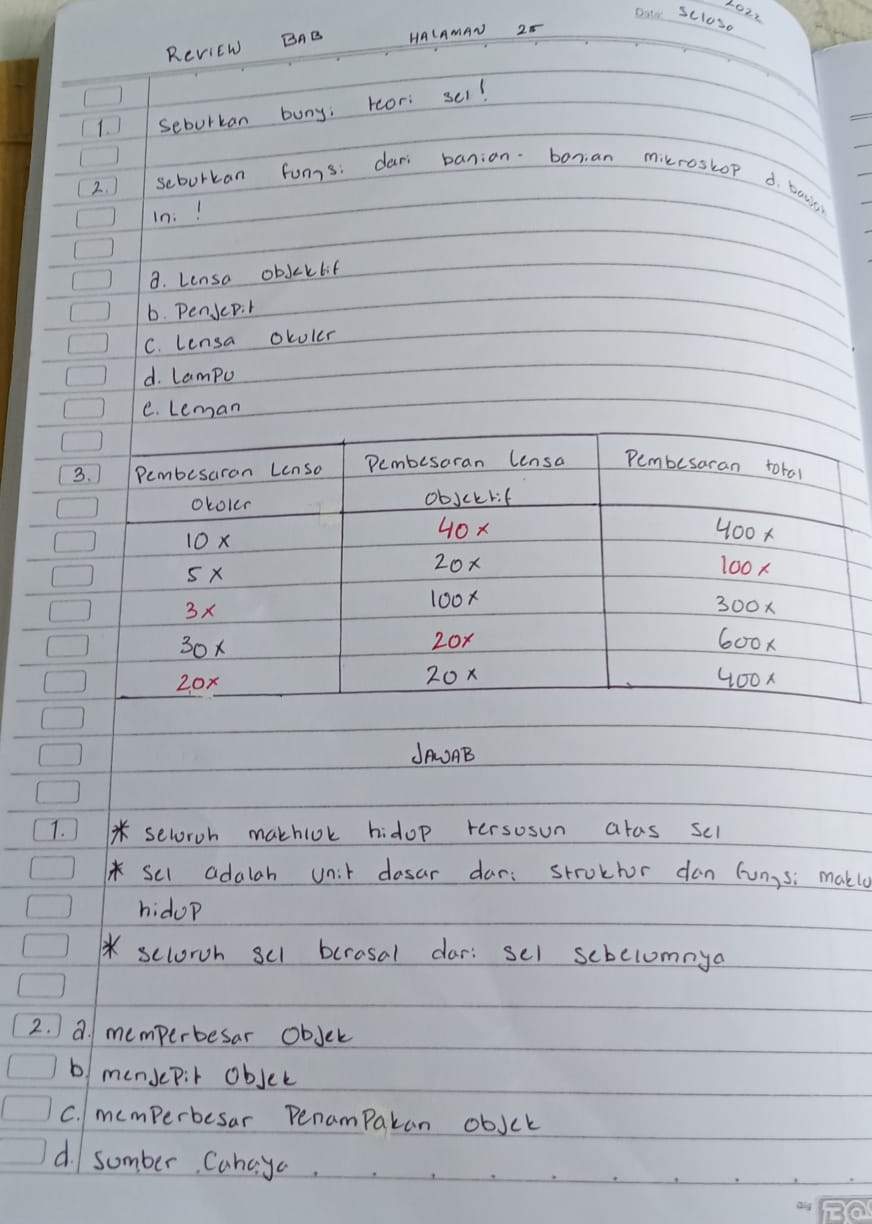 Date: Selasa
2022
REVIEW BAB HALAMAN 25
1. Seburkan bunyi teori sel!
2. seburkan fungsi dari bagian-bagian mikroskop di bawah
ini!
a. Lensa objektif
b. Penjepit
c. Lensa Okuler
d. Lampu
e. Lengan
3. Pembesaran Lensa Pembesaran Lensa Pembesaran total
Okuler Objektif
10 x 40 x 400 x
5 x 20 x 100 x
3x 100 x 300 x
30 x 20x 600 x
20x 20 x 400 x
JAWAB
1. * seluruh makhluk hidup tersusun atas sel
* sel adalah unit dasar dari struktur dan fungsi maklu
hidup
* seluruh sel berasal dari sel sebelumnya
2. a. memperbesar Objek
b. menjepit Objek
c. memperbesar Penampakan objek
d. sumber Cahaya